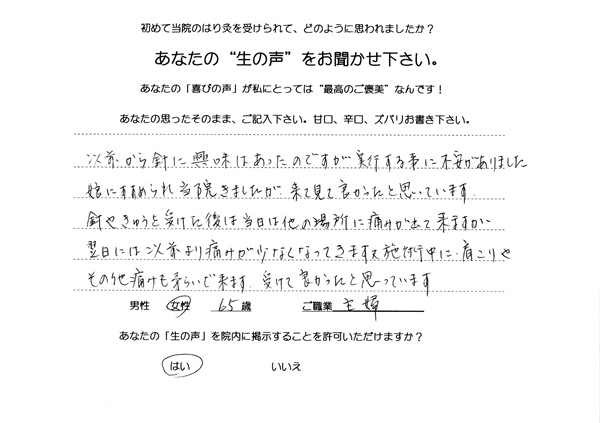 初めて当院のはり灸を受けられて、どのように思われましたか？
あなたの“生の声”をお聞かせ下さい。
あなたの「喜びの声」が私にとっては“最高のご褒美”なんです！
あなたの思ったそのまま、ご記入下さい。甘口、辛口、ズバリお書き下さい。
以前から針に興味はあったのですが実行する事に不安がありました
娘にすすめられ当院きましたが、来て見て良かったと思っています。
針やきゅうを受けた後は当日は他の場所に痛みが出て来ますが
翌日には以前より痛みが少なくなってきます又施術中に、肩こりや
その他痛みも柔らいで来ます、受けて良かったと思っています
男性 女性 65歳 ご職業 主婦
あなたの「生の声」を院内に掲示することを許可いただけますか？
はい いいえ